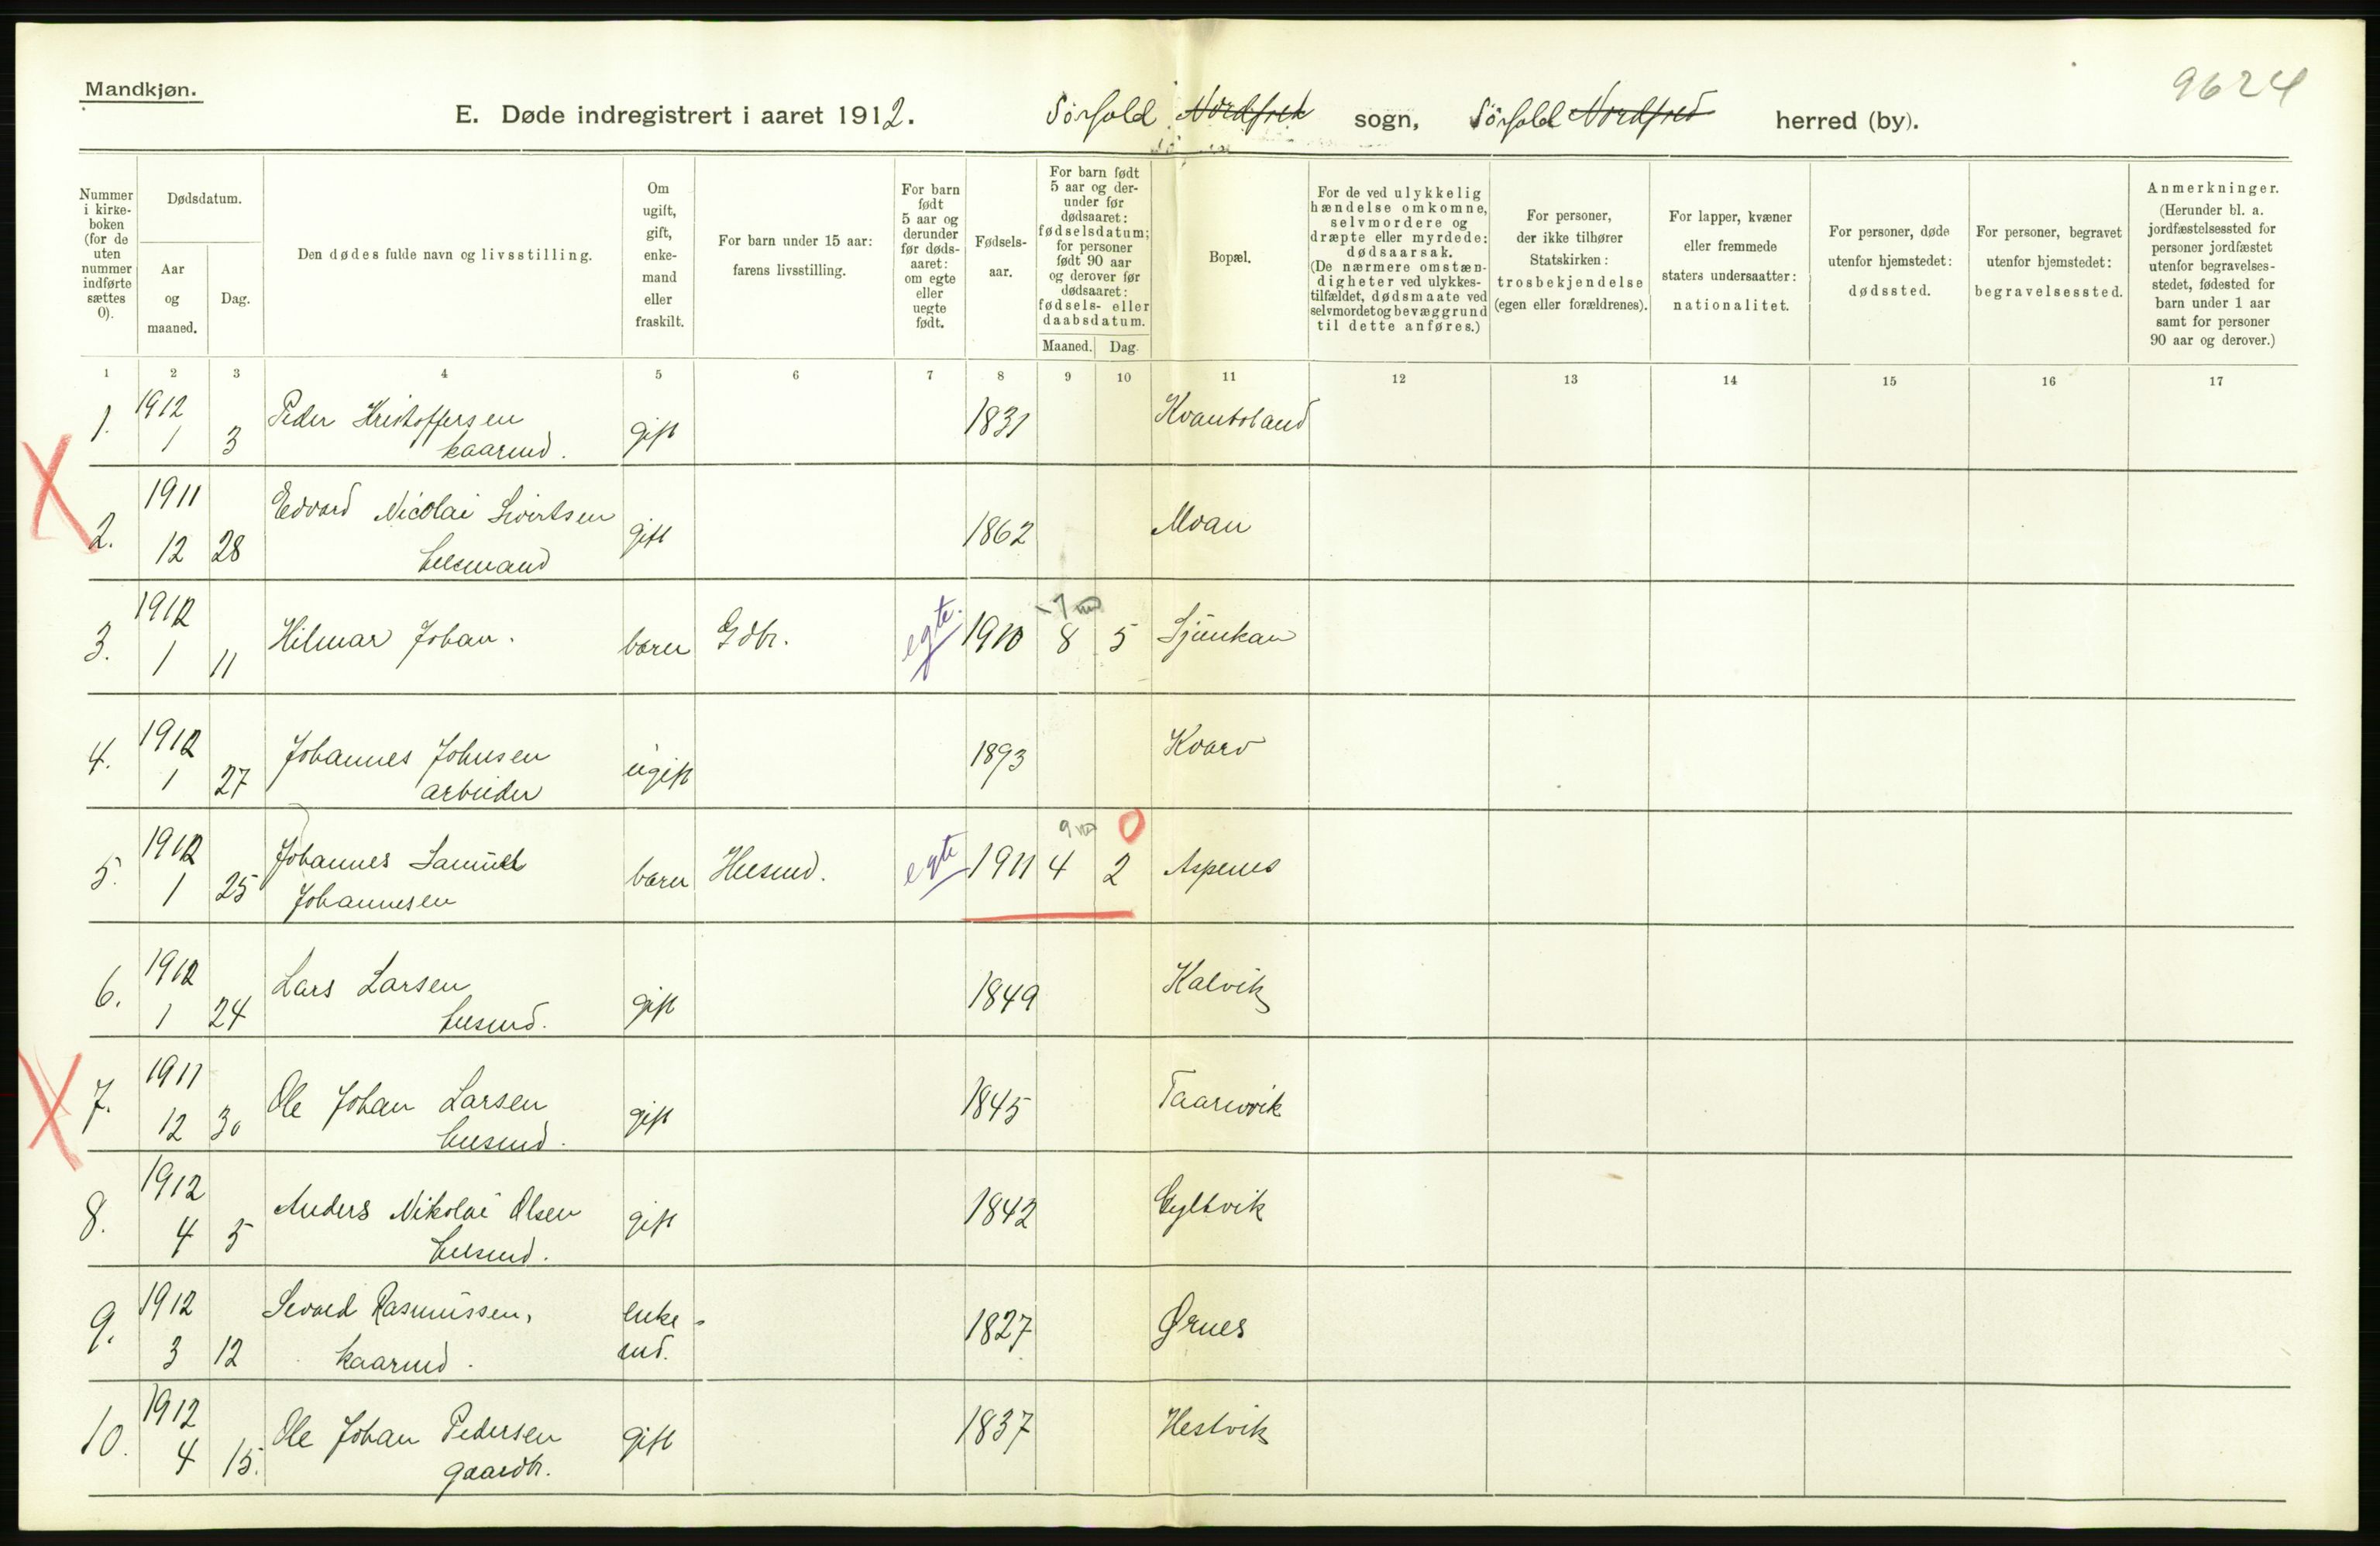 Mandkjøn.
9624
E. Døde indregistrert i aaret 1912. Sörfold Nordfold sogn, Sörfold Nordfold herred (by).
Nummer i kirke-boken (for de uten nummer indførte sættes 0).
Dødsdatum.
Aar og maaned.
Dag.
Den dødes fulde navn og livsstilling.
Om ugift, gift, enke-mand eller fraskilt.
For barn under 15 aar: farens livsstilling.
For barn født 5 aar og derunder før døds-aaret: om egte eller uegte født.
Fødsels-aar.
For barn født 5 aar og der-under før dødsaaret: fødselsdatum; for personer født 90 aar og derover før dødsaaret: fødsels- eller daabsdatum.
Maaned. Dag.
Bopæl.
For de ved ulykkelig hændelse omkomne, selvmordere og dræpte eller myrdede: dødsaarsak. (De nærmere omstæn-digheter ved ulykkes-tilfældet, dødsmaate ved selvmordet og bevæggrund til dette anføres.)
For personer, der ikke tilhører Statskirken: trosbekjendelse (egen eller forældrenes).
For lapper, kvæner eller fremmede staters undersaatter: nationalitet.
For personer, døde utenfor hjemstedet: dødssted.
For personer, begravet utenfor hjemstedet: begravelsessted.
Anmerkninger. (Herunder bl. a. jordfæstelsessted for personer jordfæstet utenfor begravelses-stedet, fødested for barn under 1 aar samt for personer 90 aar og derover.)
1 2 3 4 5 6 7 8 9 10 11 12 13 14 15 16 17
1. 1912 1 3 Peder Kristoffersen kaarmd. gift 1831
2. 1911 12 28 Edvard Nicolai Sivertsen husmand gift 1862 Moan
3. 1912 1 11 Hilmar Johan. barn Gdbr. egte. 1910 8 5
4. 1912 1 27 Johannes Johnsen arbeider ugift 1893 Kvarv
5. 1912 1 25 Johannes Samuel Johannesen barn Husmd. egte 1911 9 m 4 2 0 Aspenes
6. 1912 1 24 Lars Larsen husmd. gift 1849 Kalvik
7. 1911 12 30 Ole Johan Larsen husmd. gift 1845 Taarnvik
8. 1912 4 5 Anders Nikolai Olsen husmd. gift 1842 Gyltvik
9. 1912 3 12 Sevald Rasmussen, kaarmd. enke-md. 1827 Ørnes
10. 1912 4 15. Ole Johan Pedersen gaardbr. gift 1837 Hestvik